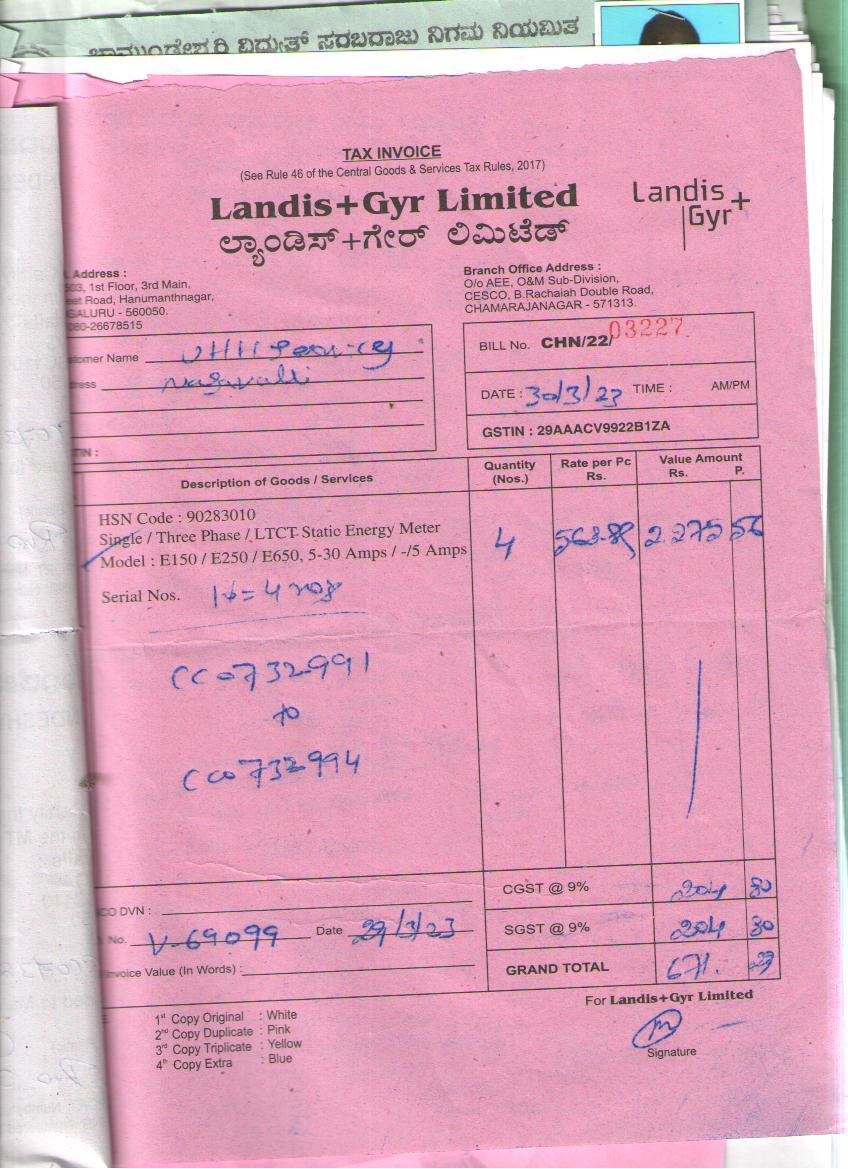 ಚಾಮುಂಡೇಶ್ವರಿ ವಿದ್ಯುತ್ ಸರಬರಾಜು ನಿಗಮ ನಿಯಮಿತ
TAX INVOICE
(See Rule 46 of the Central Goods & Services Tax Rules, 2017)
Landis+Gyr Limited
ಲ್ಯಾಂಡಿಸ್+ಗೇರ್ ಲಿಮಿಟೆಡ್
Landis
Gyr+
Address :
1st Floor, 3rd Main,
Road, Hanumanthnagar,
GALURU - 560050.
080-26678515
Branch Office Address :
O/o AEE, O&M Sub-Division,
CESCO, B.Rachaiah Double Road,
CHAMARAJANAGAR - 571313.
tomer Name
Nagavalli
BILL No. CHN/22/ 03227
DATE : 30/3/23 TIME : AM/PM
GSTIN : 29AAACV9922B1ZA
Description of Goods / Services Quantity (Nos.) Rate per Pc Rs. Value Amount Rs. P.
HSN Code : 90283010
Single / Three Phase / LTCT Static Energy Meter
Model : E150 / E250 / E650, 5-30 Amps / -/5 Amps 4 2275 56
Serial Nos. 1ɸ = 4 nos
CC0732991
to
CC0732994
CGST @ 9% 204 80
SGST @ 9% 204 80
GRAND TOTAL 671.
CO DVN :
No. V-69099 Date 29/3/23
Invoice Value (In Words) :
For Landis+Gyr Limited
Signature
1st Copy Original : White
2nd Copy Duplicate : Pink
3rd Copy Triplicate : Yellow
4th Copy Extra : Blue